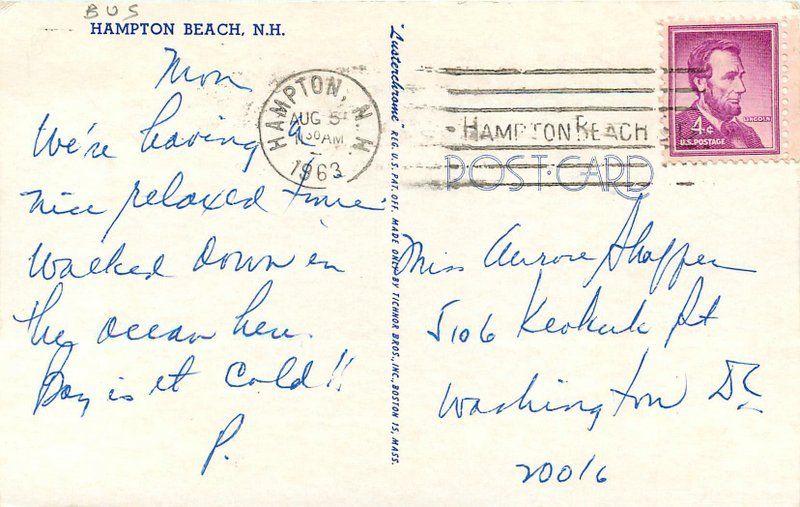 BUS
HAMPTON BEACH, N.H.
Mon
We're having a
nice relaxed time.
Walked down in
the ocean here.
Boy is it cold!!
P.
"Lusterchrome" REG. U.S. PAT. OFF. MADE ONLY BY TICHNOR BROS., INC., BOSTON 15, MASS.
HAMPTON, N.H.
AUG 5
30 AM
1963
HAMPTON BEACH
POST CARD
LINCOLN
4¢
U.S. POSTAGE
Miss Aurore Shaffer
5106 Keokuk St
Washington DC
20016